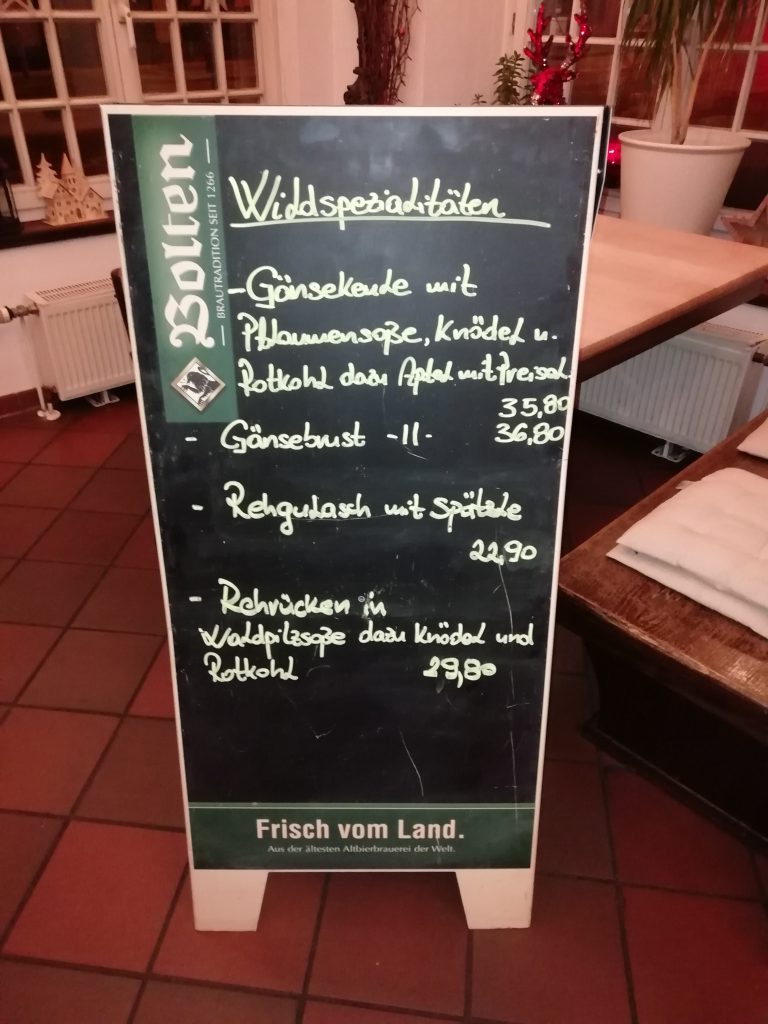 Bolten
BRAUTRADITION SEIT 1266
Wildspezialitäten
- Gänsekeule mit
Pflaumensoße, Knödel u.
Rotkohl dazu Apfel mit Preisel.
35,80
- Gänsebrust -11- 36,80
- Rehgulasch mit Spätzle
22,90
- Rehrücken in
Waldpilzsoße dazu Knödel und
Rotkohl 29,80
Frisch vom Land.
Aus der ältesten Altbierbrauerei der Welt.